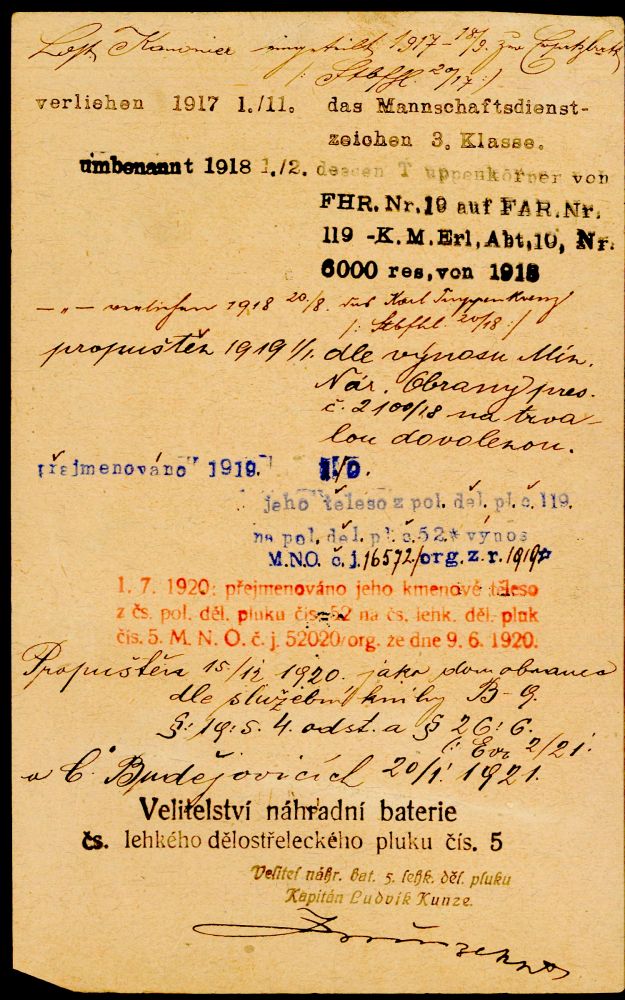 Kanonier eingeteilt 1917 - 18/9. zur Ersatzbatt.
/: Stbfhl. 20/17 :/
verliehen 1917 1./11. das Mannschaftsdienst-
zeichen 3. Klasse.
umbenannt 1918 1./2. dessen T uppenkörper von
FHR. Nr. 10 auf FAR. Nr.
119 -K.M.Erl. Abt, 10, Nr.
6000 res, von 1918
- „ - verliehen 1918 20./8. das Karl Truppenkreuz
/: Stbfhl. 20/18 :/
propuštěn 1919 1/1. dle výnosu Min.
Nár. Obrany pres.
č. 2100/18 na trva-
lou dovolenou.
přejmenováno 1919. 1./9.
jeho těleso z pol. děl. pl. č. 119.
na pol. děl. pl. č. 52 * výnos
M.N.O. č. j. 16572/org. z. r. 1919
1. 7. 1920: přejmenováno jeho kmenové těleso
z čs. pol. děl. pluku čís. 52 na čs. lehk. děl. pluk
čís. 5. M. N. O. č. j. 52020/org. ze dne 9. 6. 1920.
Propuštěn 15/12 1920. jako domobranec
dle služební knihy B-9.
§: 19: S. 4. odst. a § 26: 6.
(: Evr 2/21:
v Č. Budějovicích 20/1. 1921.
Velitelství náhradní baterie
čs. lehkého dělostřeleckého pluku čís. 5
Velitel náhr. bat. 5. lehk. děl. pluku
Kapitán Ludvík Kunze.